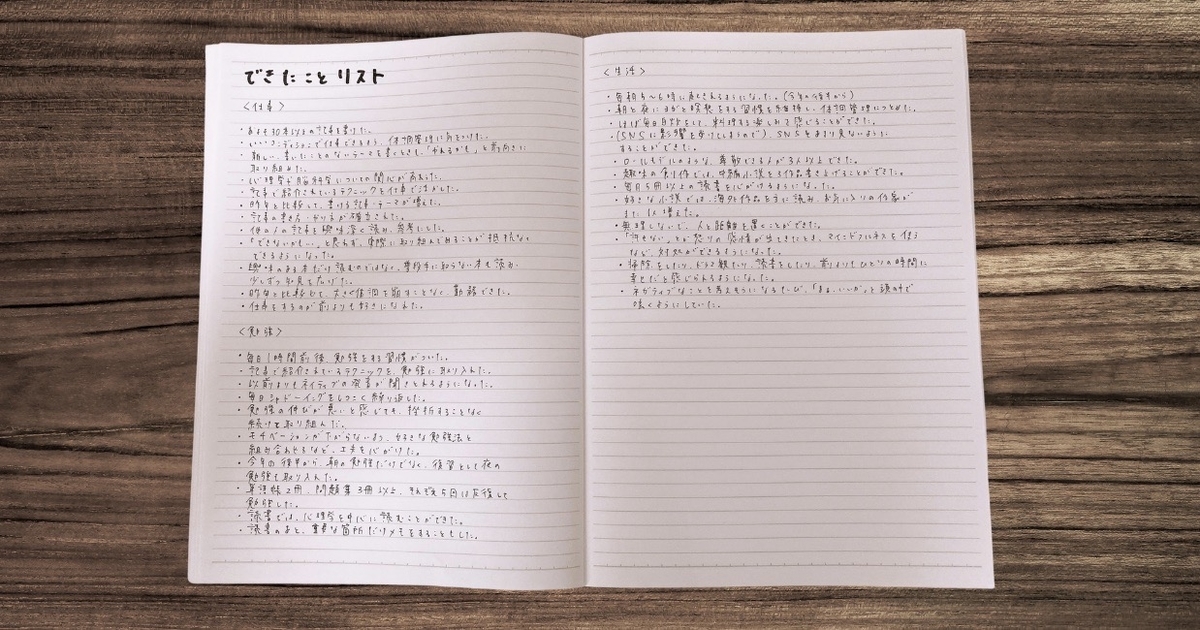 できたことリスト
<仕事>
・およそ30本以上の記事を書けた。
・いいコンディションで仕事できるよう、体調管理に気をつけた。
・難しい、書いたことのないテーマを書くときも、「やれるかも」と前向きに
取り組めた。
・心理学や脳科学についての関心が高まった。
・記事で紹介されているテクニックを仕事で活かした。
・昨年と比較して、書ける記事テーマが増えた。
・記事の書き方、やり方が確立された。
・他の人の記事を興味深く読み、参考にした。
・「できないかも…」と思わず、実際に取り組んでみることが抵抗な
できるようになった。
・興味のある本だけ読むのではなく、普段手に取らない本も読み、
少しずつ知見を広げた。
・昨年と比較して、大きく体調を崩すことなく、勤務できた。
・仕事をするのが前よりも好きになれた。
<勉強>
・毎日1時間前後、勉強をする習慣がついた。
・記事で紹介されているテクニックを、勉強に取り入れた。
・以前よりもネイティブの発音が聞きとれるようになった。
・毎日シャドーイングをしつこく繰り返した。
・勉強の伸びが悪いと感じても、挫折することなく
続けて取り組んだ。
・モチベーションが下がらないよう、好きな勉強法と
組み合わせるなど、工夫を心がけた。
・今年の後半から、朝の勉強だけでなく、復習として夜の
勉強も取り入れた。
・単語帳2冊、問題集3冊以上、それぞれ5回は反復して
勉強した。
・読書では、心理学を中心に読むことができた。
・読書のあと、重要な箇所だけメモをすることもした。
<生活>
・毎朝5〜6時に起きれるようになった。(今年の後半から)
・朝と夜にヨガと瞑想をする習慣を維持し、体調管理につとめた。
・ほぼ毎日自炊をして、料理する楽しみを感じることができた。
・(SNSに影響を受けてしまうので)、SNSをあまり見ないように
することができた。
・ロールモデルのような、尊敬できる人が3人以上できた。
・趣味の創作では、中編小説を3作品書き上げることができた。
・毎月5冊以上の読書を心がけるようになった。
・好きな小説では、海外作品を主に読み、お気に入りの作家が
また1人増えた。
・無理しないで、人と距離を置くことができた。
・「許せない」とか怒りの感情が出てきたとき、マインドフルネスを使う
など、対処ができるようになった。
・掃除をしたり、ドラマ観たり、読書をしたり、前よりもひとりの時間に
幸せだと感じられるようになった。
・ネガティブなことを考えそうになるたび、「まぁ、いいか」って頭の中で
呟くようにしていた。